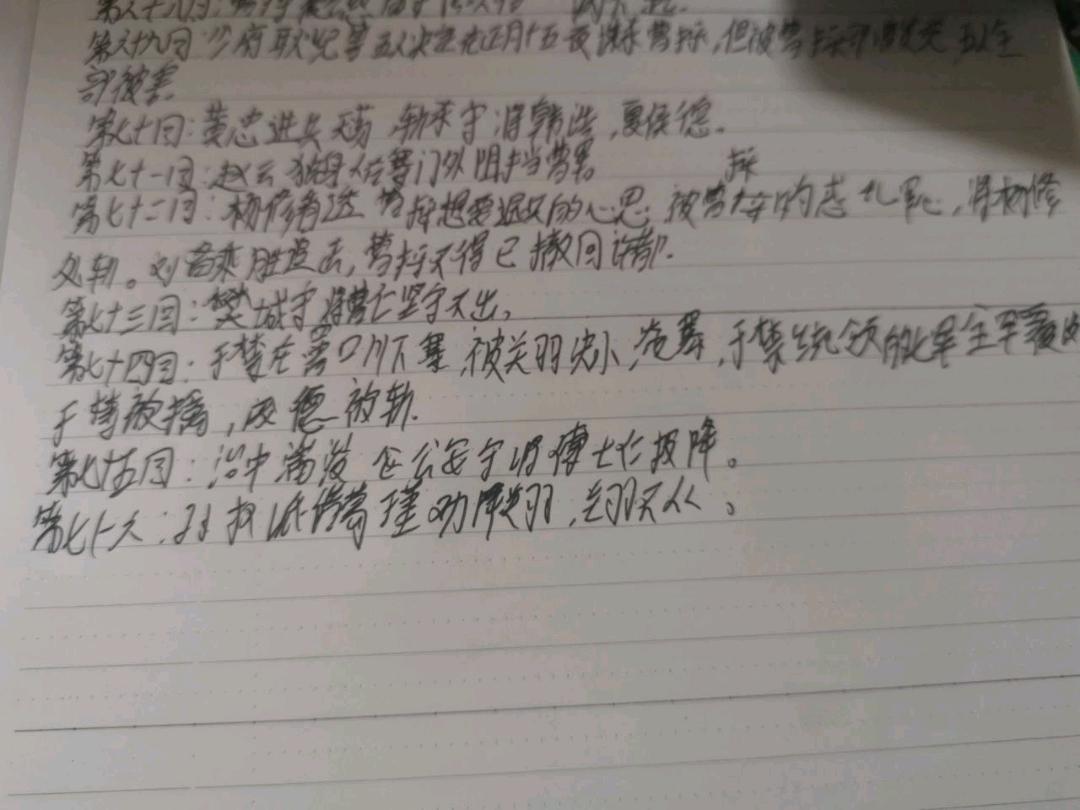 第六十八回:
第六十九回 少府耿纪等五人决定在正月十五夜谋杀曹操,但被曹操 五人全
部被害
第七十回:黄忠进兵天荡 斩杀守将韩浩,夏侯德。
第七十一回:赵云独自在寨门外阻挡曹军 操
第七十二回:杨修看透 曹操想要退兵的心思 被曹 惑乱军心,将杨修
处斩。刘备乘胜追击,曹操不得已撤回许都.
第七十三回:樊城守将曹仁坚守不出。
第七十四回:于禁在 口川下寨,被关羽 于禁统领的七军全军覆
于禁被擒,庞德被斩.
第七十五回: 公安守将傅士仁投降。
第七十六:孙权派诸葛瑾劝降关羽,关羽不从。